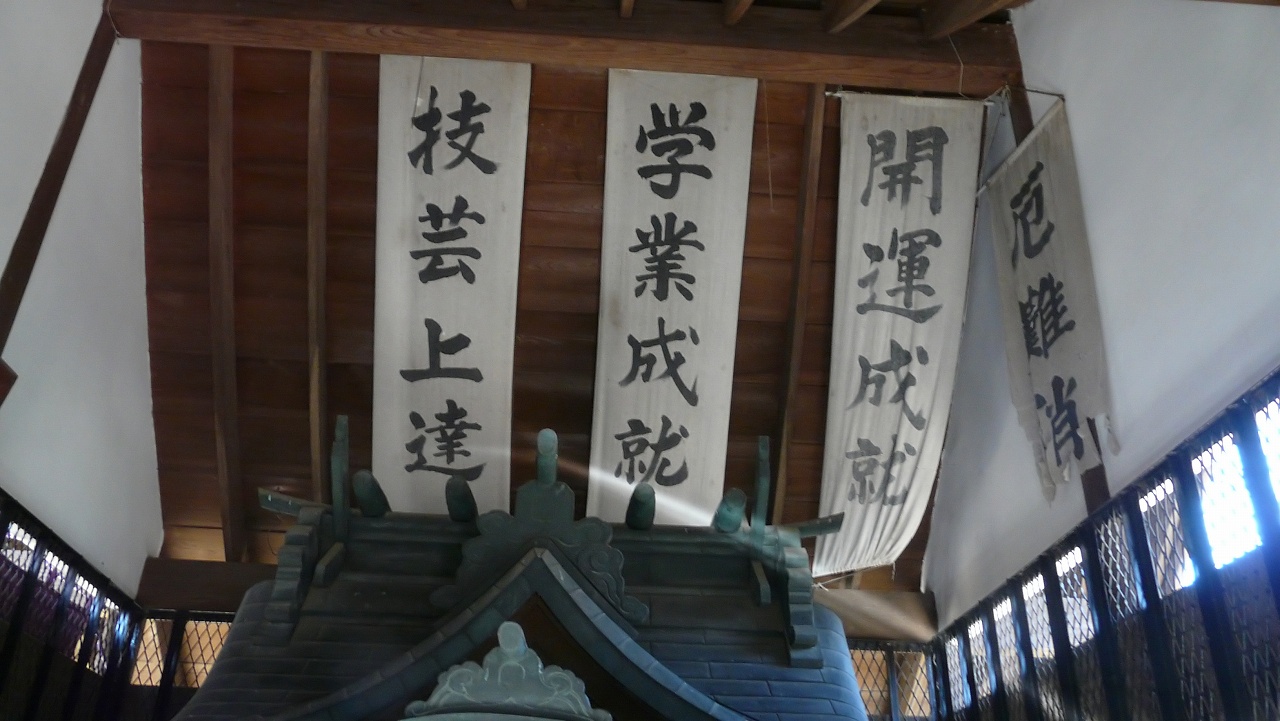 厄難消
開運成就
学業成就
技芸上達